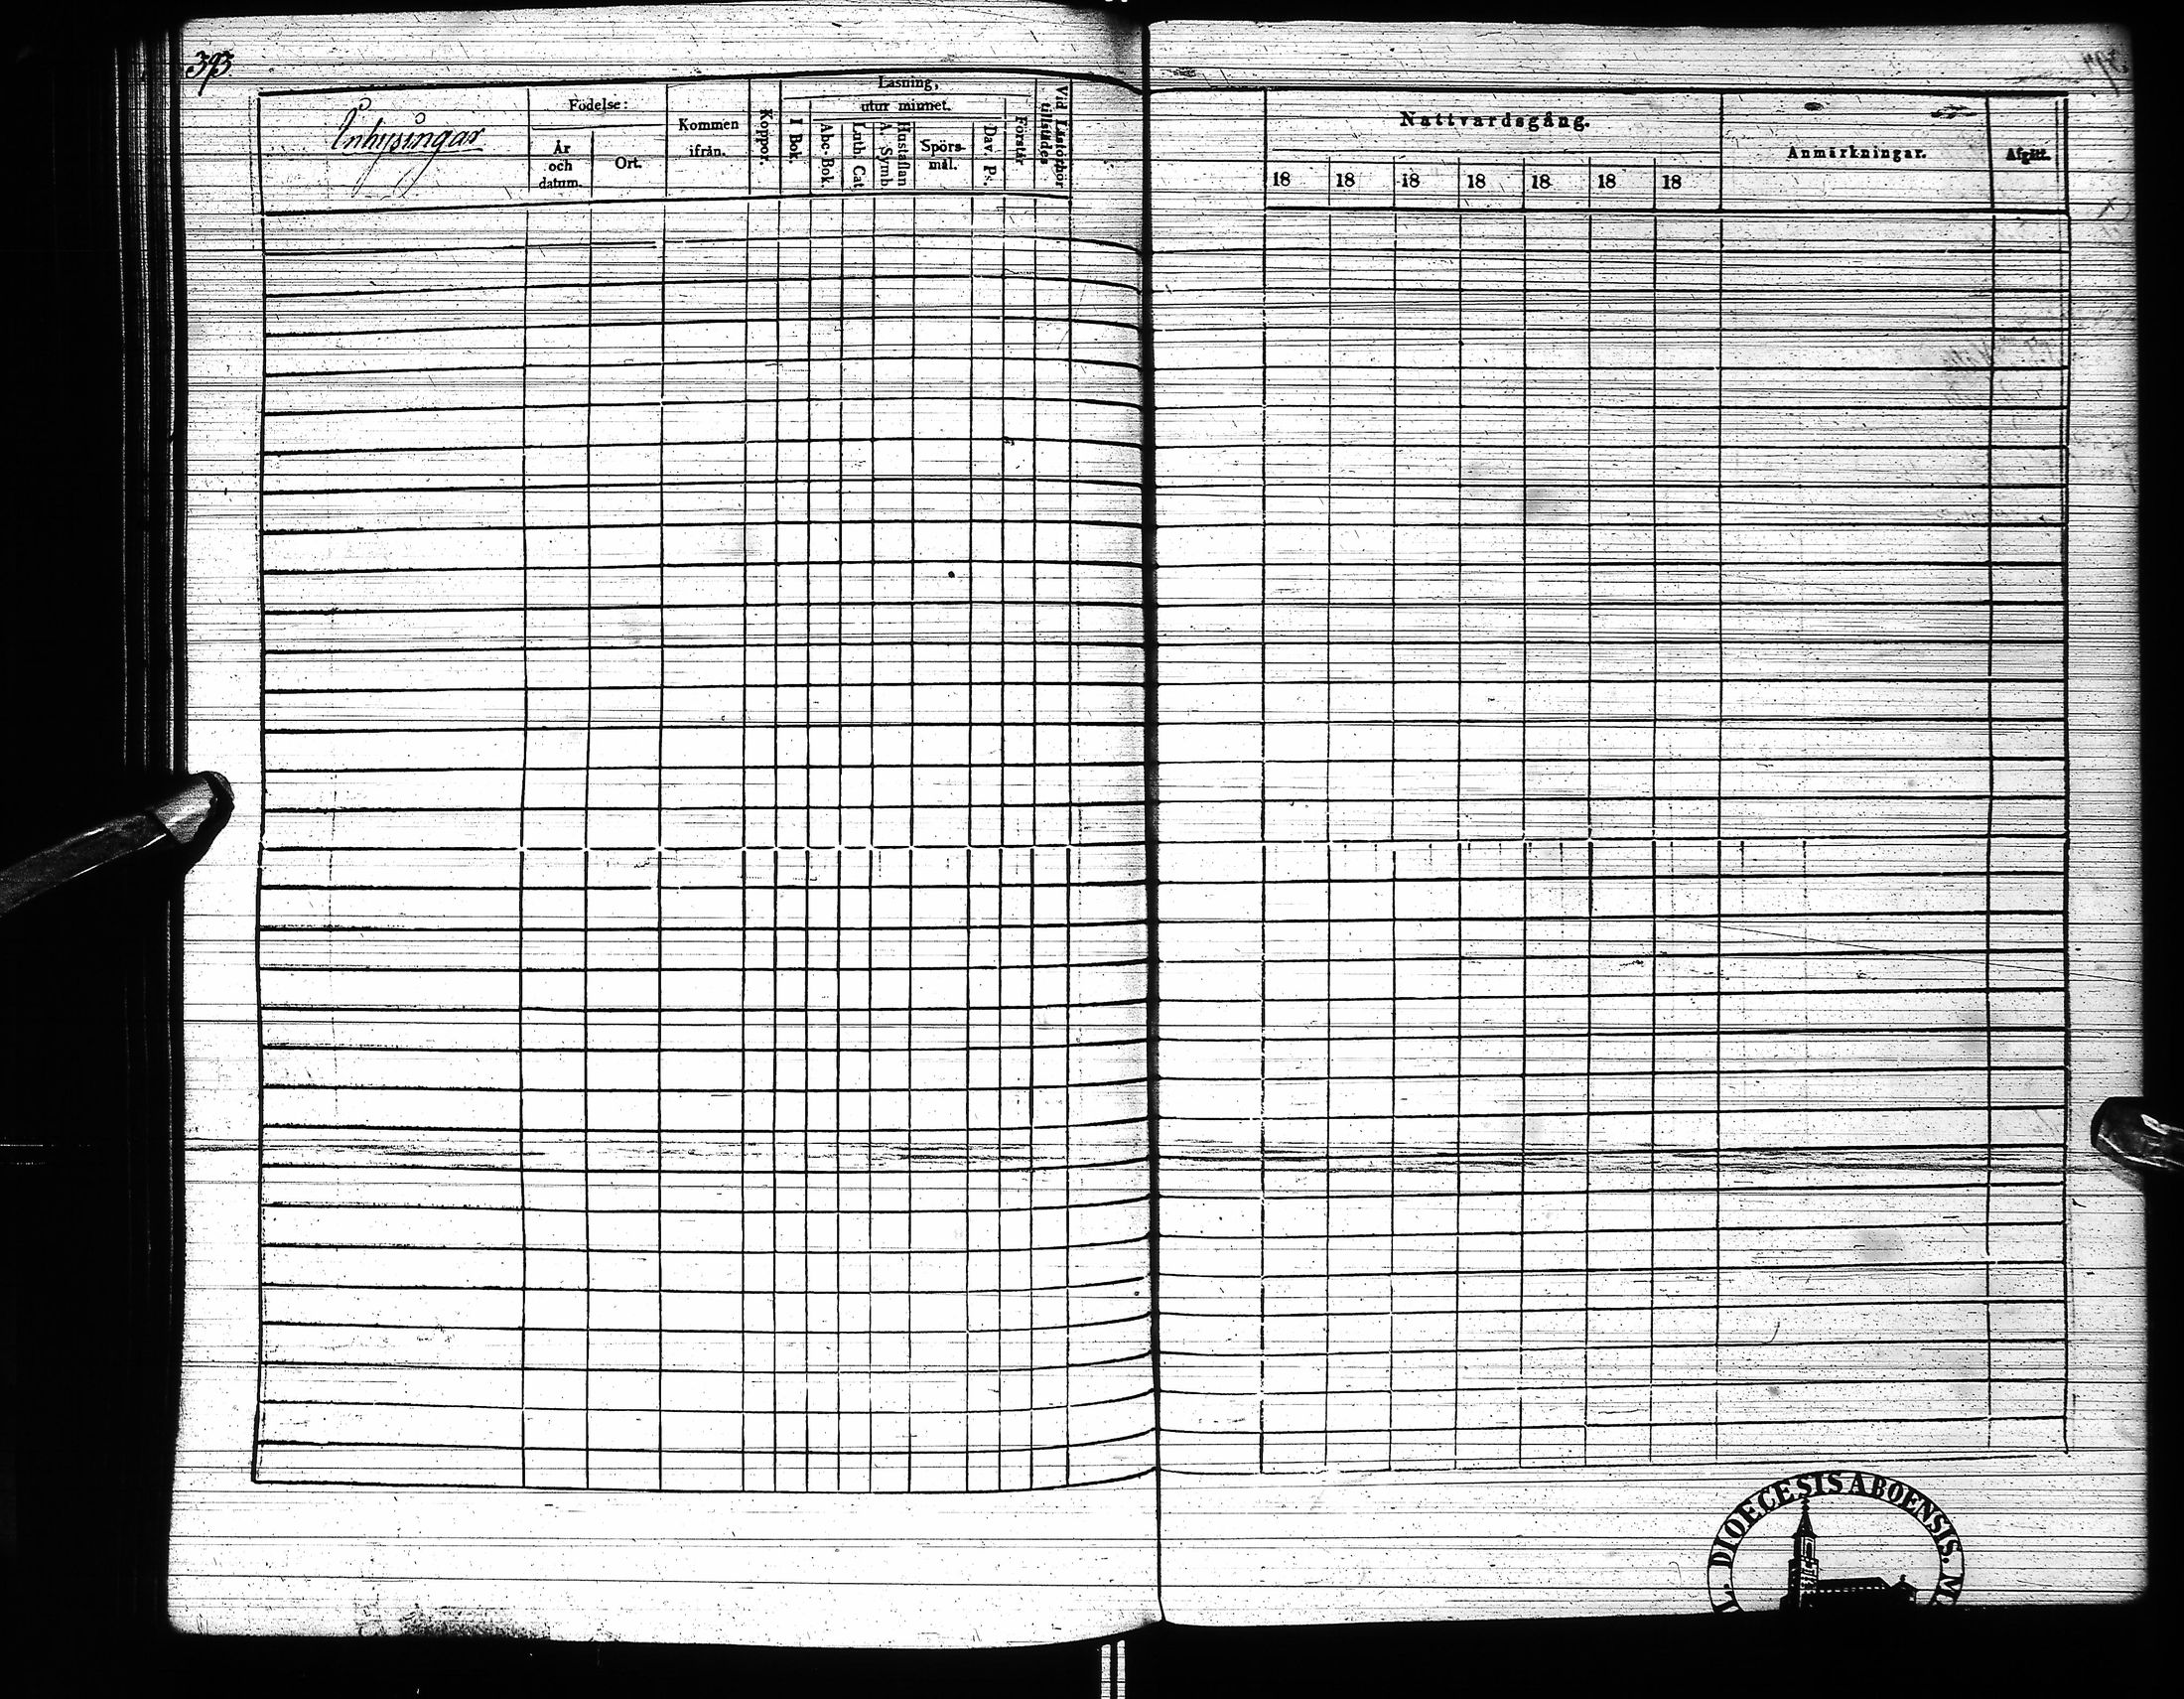 393
Inhysingar
Födelse:
År
och
datum.
Ort.
Kommen
ifrån.
Koppor.
Läsning,
I Bok.
utur minnet.
Abc-Bok.
Luth. Cat.
A. Symb.
Hustaflan
Spörs-
mål.
Dav. Ps.
Förstår
Vid Läsförhör
tillstädes
Nattvardsgång.
18 18 18 18 18 18 18
Anmärkningar.
Afgått.
DIOECESIS ABOENSIS. M.